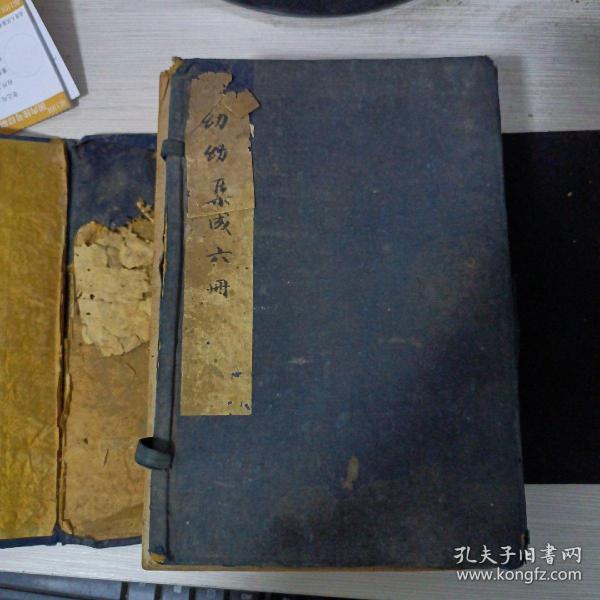 幼幼集成六冊
孔夫子旧書网
www.kongfz.com